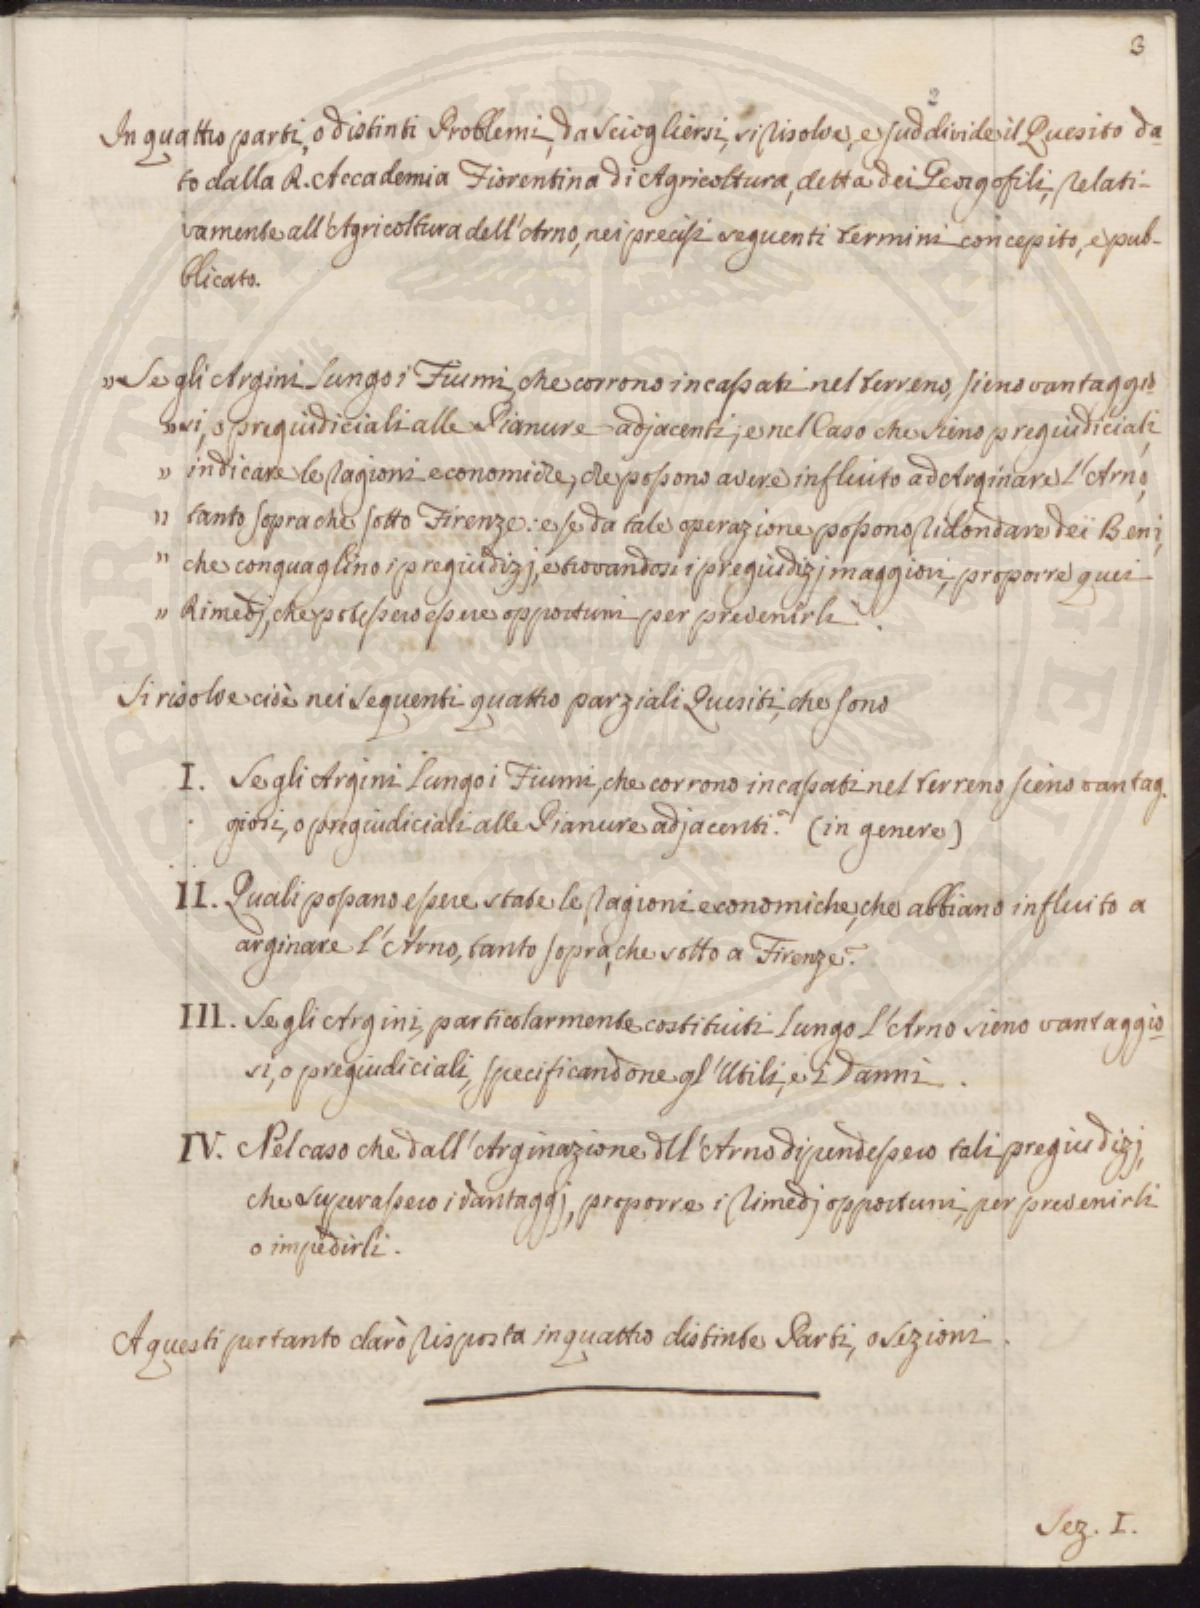 3
2
In quattro parti, o distinti Problemi, da Sciogliersi, si risolve, e suddivide il Quesito da-
to dalla R. Accademia Fiorentina di Agricoltura, detta dei Georgofili, relati-
vamente all'Agricoltura dell'Arno, nei precisi seguenti termini concepito, e pub-
blicato.
„ Se gli Argini lungo i Fiumi, che corrono incassati nel terreno, sieno vantaggio-
„ si, o pregiudiciali alle Pianure adjacenti; e nel Caso che sieno pregiudiciali,
„ indicare le ragioni economiche, che possono avere influito ad Arginare l'Arno,
„ tanto sopra che sotto Firenze: e se da tale operazione possono ridondare dei Beni,
„ che conguaglino i pregiudizj, e trovandosi i pregiudizj maggiori, proporre quei
„ Rimedj, che potessero essere opportuni per prevenirli.
Si risolve cioè nei seguenti quattro parziali Quesiti, che sono
I. Se gli Argini lungo i Fiumi, che corrono incassati nel terreno sieno vantag-
giosi, o pregiudiciali alle Pianure adjacenti? (in genere)
II. Quali possano essere state le ragioni economiche, che abbiano influito a
arginare l'Arno, tanto sopra, che sotto a Firenze?
III. Se gli Argini, particolarmente costituiti lungo l'Arno sieno vantaggio-
si, o pregiudiciali, specificandone gl'Utili, e i Danni.
IV. Nel caso che dall'Arginazione dell'Arno dipendessero tali pregiudizj,
che superassero i vantaggj, proporre i rimedj opportuni, per prevenirli
o impedirli.
A questi pertanto darò risposta in quattro distinte Parti, o Sezioni.
Sez. I.